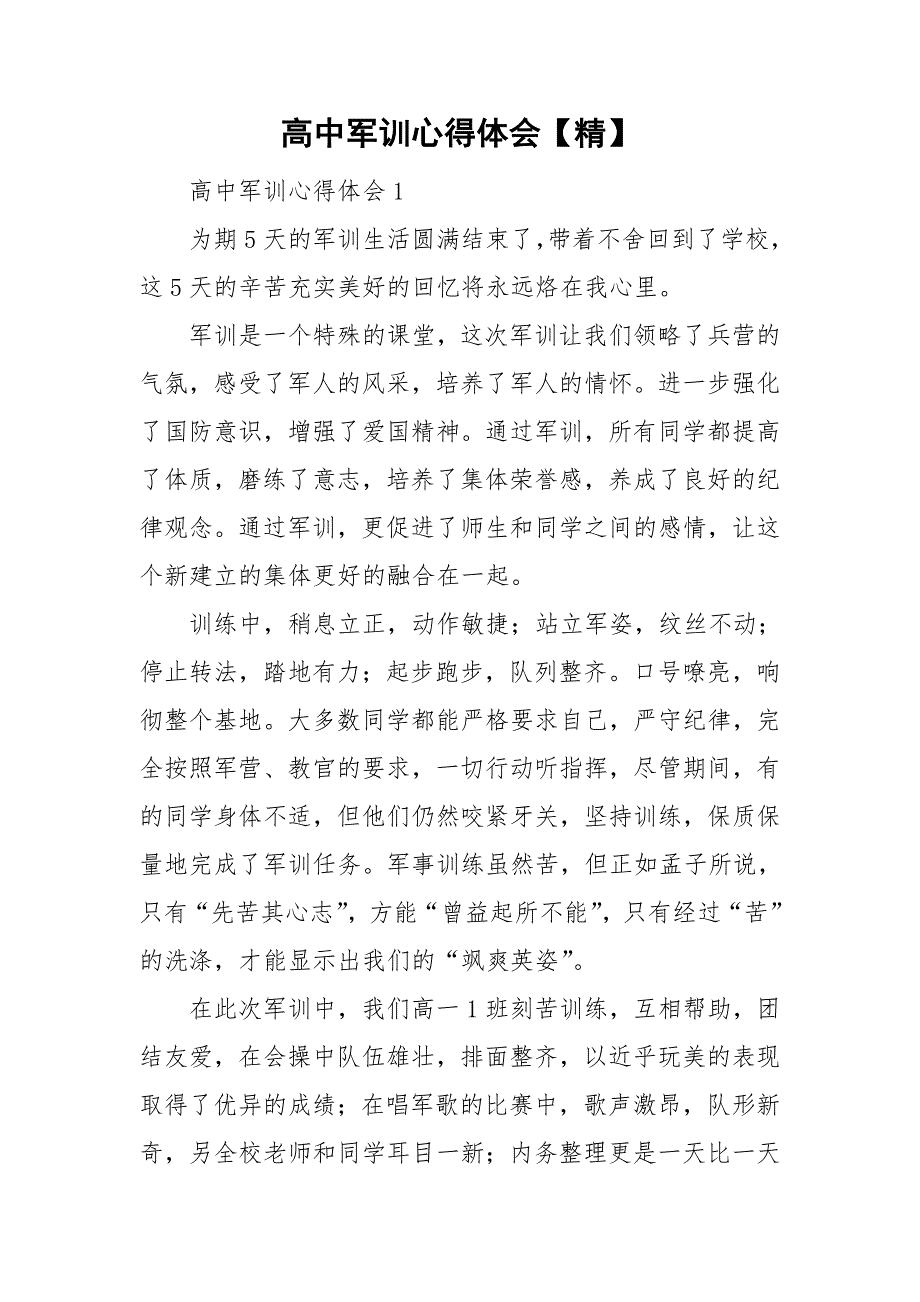 高中军训心得体会【精】
高中军训心得体会1
为期5天的军训生活圆满结束了，带着不舍回到了学校，
这5天的辛苦充实美好的回忆将永远烙在我心里。
军训是一个特殊的课堂，这次军训让我们领略了兵营的
气氛，感受了军人的风采，培养了军人的情怀。进一步强化
了国防意识，增强了爱国精神。通过军训，所有同学都提高
了体质，磨练了意志，培养了集体荣誉感，养成了良好的纪
律观念。通过军训，更促进了师生和同学之间的感情，让这
个新建立的集体更好的融合在一起。
训练中，稍息立正，动作敏捷；站立军姿，纹丝不动；
停止转法，踏地有力；起步跑步，队列整齐。口号嘹亮，响
彻整个基地。大多数同学都能严格要求自己，严守纪律，完
全按照军营、教官的要求，一切行动听指挥，尽管期间，有
的同学身体不适，但他们仍然咬紧牙关，坚持训练，保质保
量地完成了军训任务。军事训练虽然苦，但正如孟子所说，
只有“先苦其心志”，方能“曾益起所不能”，只有经过“苦”
的洗涤，才能显示出我们的“飒爽英姿”。
在此次军训中，我们高一1班刻苦训练，互相帮助，团
结友爱，在会操中队伍雄壮，排面整齐，以近乎玩美的表现
取得了优异的成绩；在唱军歌的比赛中，歌声激昂，队形新
奇，另全校老师和同学耳目一新；内务整理更是一天比一天